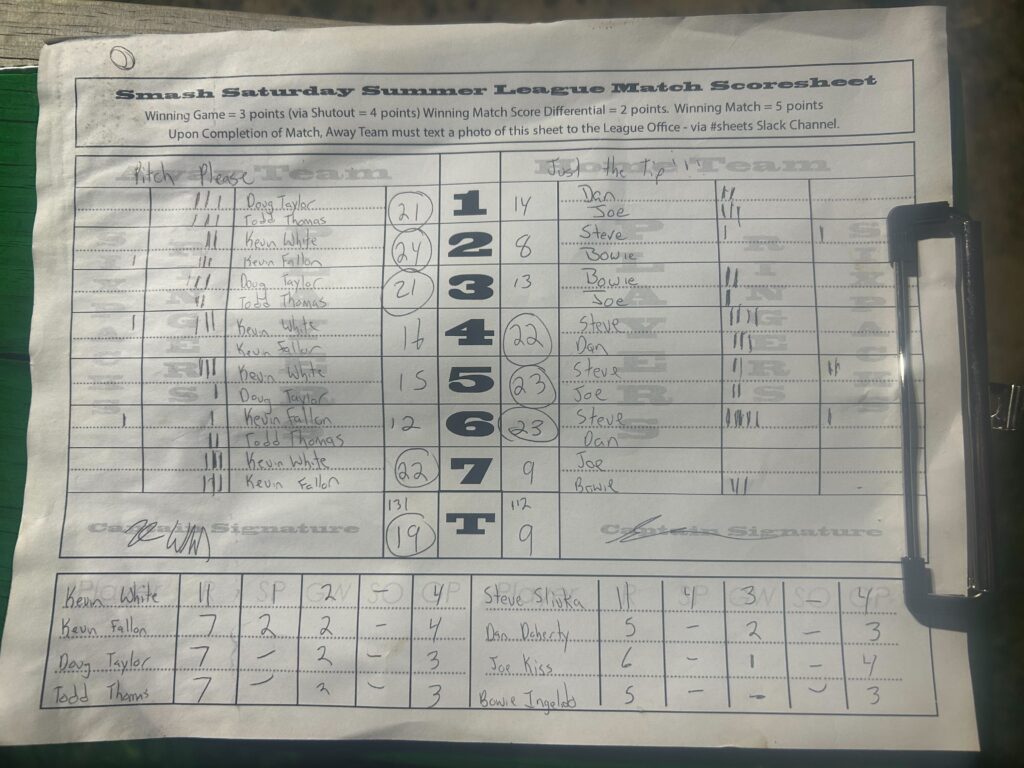 Smash Saturday Summer League Match Scoresheet
Winning Game = 3 points (via Shutout = 4 points) Winning Match Score Differential = 2 points. Winning Match = 5 points
Upon Completion of Match, Away Team must text a photo of this sheet to the League Office - via #sheets Slack Channel.
Away Team Home Team
Pitch Please Just the Tip!!
Doug Taylor 21 1 14 Dan
Todd Thomas Joe
Kevin White 24 2 8 Steve
Kevin Fallon Bowie
Doug Taylor 21 3 13 Bowie
Todd Thomas Joe
Kevin White 16 4 22 Steve
Kevin Fallon Dan
Kevin White 15 5 23 Steve
Doug Taylor Joe
Kevin Fallon 12 6 23 Steve
Todd Thomas Dan
Kevin White 22 7 9 Joe
Kevin Fallon Bowie
SIXPACKS RINGERS PLAYERS RINGERS SIXPACKS
131 T 112
Captain Signature 19 9 Captain Signature
Player R SP GW SO GP Player R SP GW SO GP
Kevin White 11 1 2 - 4 Steve Slivka 11 4 3 - 4
Kevin Fallon 7 2 2 - 4 Dan Doherty 5 - 2 - 3
Doug Taylor 7 - 2 - 3 Joe Kiss 6 - 1 - 4
Todd Thomas 7 - 2 - 3 Bowie 5 - - - 3